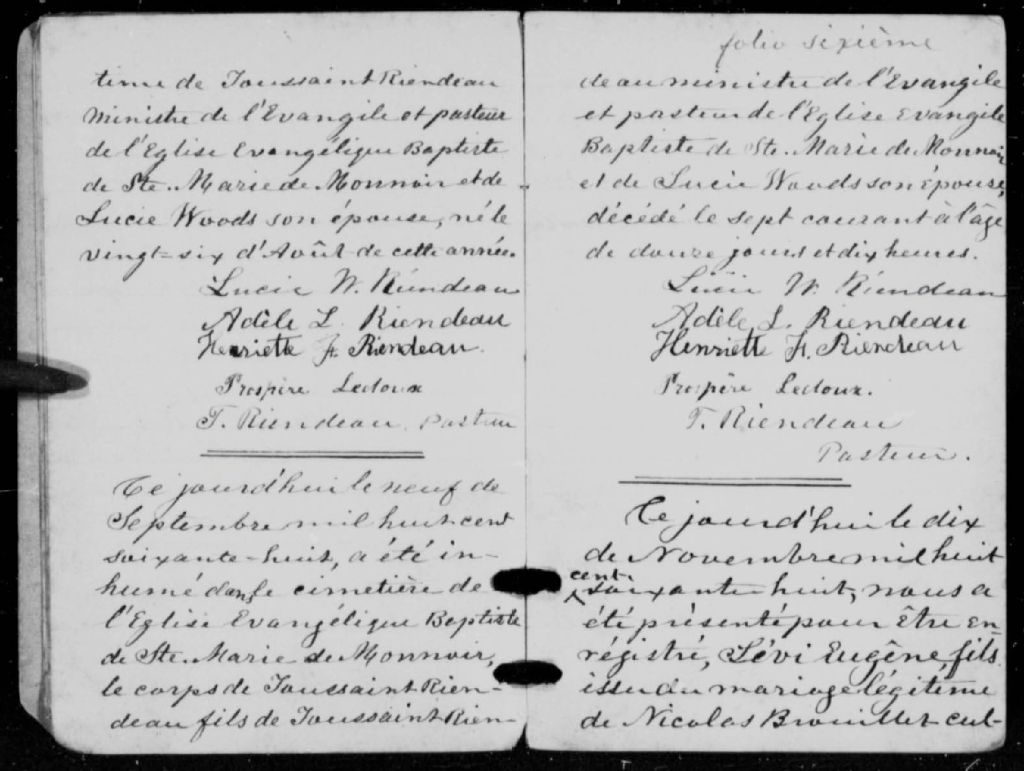 time de Toussaint Riendeau
Ministre de l'Evangile et pasteur
de l'Eglise Evangélique Baptiste
de Ste. Marie de Monnoir et de
Lucie Woods son épouse, né le
vingt-six d'Août de cette année.
Lucie W. Riendeau
Adèle L. Riendeau
Henriette F. Riendeau.
Prospère Ledoux
T. Riendeau. Pasteur
Ce jourd'hui le neuf de
Septembre mil huit-cent
soixante-huit, a été in-
humé dans le cimetière de
l'Eglise Evangélique Baptiste
de Ste. Marie de Monnoir,
le corps de Toussaint Rien-
deau fils de Toussaint Rien-
folio sixième
deau ministre de l'Evangile
et pasteur de l'Eglise Evangile
Baptiste de Ste. Marie de Monnoir
et de Lucie Woods son épouse,
décédé le sept courant à l'âge
de douze jours et dix heures.
Lucie W. Riendeau
Adèle L. Riendeau
Henriette F. Riendeau
Prospère Ledoux.
T. Riendeau
Pasteur.
Ce jourd'hui le dix
de Novembre mil huit
cent
soixante huit, nous a
été présenté pour être en-
régistré, Lévi Eugène, fils
issu du mariage légitime
de Nicolas Brouillet cul-